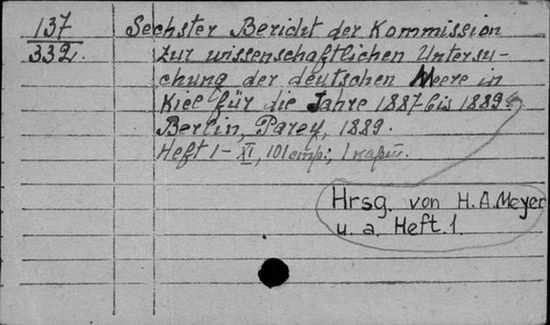 137
332.
Sechster Bericht der Kommission
zur wissenschaftlichen Untersu-
chung der deutschen Meere in
Kiel für die Jahre 1887 bis 1889.
Berlin, Parey, 1889.
Heft 1-XI, 101 стр.;
Hrsg. von H.A.Meyer
u. a. Heft. 1.